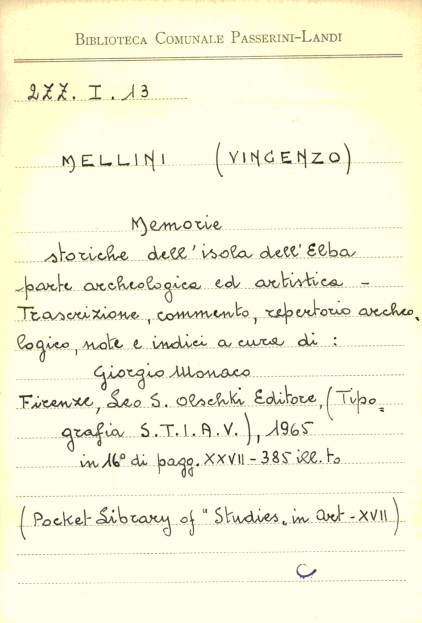 BIBLIOTECA COMUNALE PASSERINI-LANDI
2ZZ. I. 13
MELLINI (VINCENZO)
Memorie
storiche dell'isola dell'Elba
parte archeologica ed artistica -
Trascrizione, commento, repertorio archeo-
logico, note e indici a cura di:
Giorgio Monaco
Firenze, Leo S. Olschki Editore, (Tipo=
grafia S.T.I.A.V.), 1965
in 16° di pagg. XXVII - 385 ill.to
(Pocket Library of "Studies" in art - XVII)
C